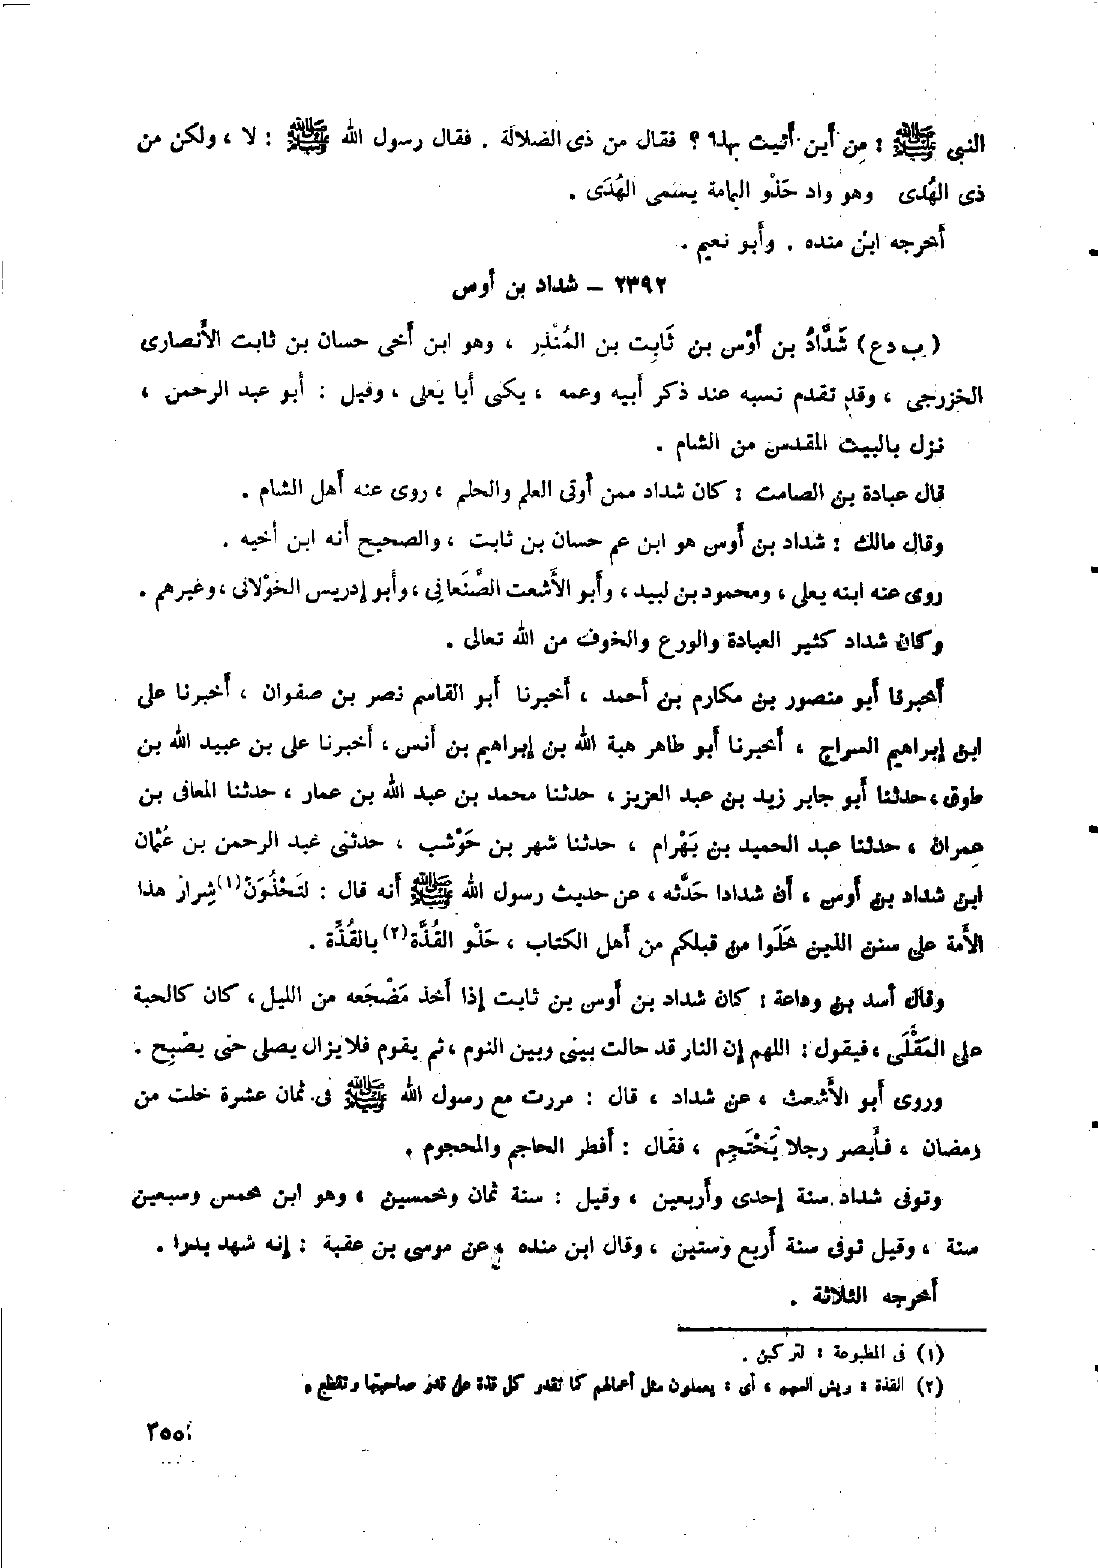 النبى ﷺ : مِن أين أتيت بهذه ؟ فقال من ذى الضلالة . فقال رسول الله ﷺ : لا ، ولكن من
ذى الهُدى وهو واد حَذْو اليمامة يسمى الهُدَى .
أخرجه ابن منده . وأبو نعيم .
٢٣٩٢ – شداد بن أوس
( ب د ع ) شَدَّادُ بن أَوْس بن ثَابِت بن المُنْذِر ، وهو ابن أخى حسان بن ثابت الأنصارى
الخزرجى ، وقد تقدم نسبه عند ذكر أبيه وعمه ، يكنى أبا يَعلى ، وقيل : أبو عبد الرحمن ،
نزل بالبيت المقدس من الشام .
قال عبادة بن الصامت : كان شداد ممن أوتى العلم والحلم ، روى عنه أهل الشام .
وقال مالك : شداد بن أوس هو ابن عم حسان بن ثابت ، والصحيح أنه ابن أخيه .
روى عنه ابنه يعلى ، ومحمود بن لبيد ، وأبو الأشعث الصَّنعانى ، وأبو إدريس الخوْلانى ، وغيرهم .
وكان شداد كثير العبادة والورع والخوف من الله تعالى .
أخبرنا أبو منصور بن مكارم بن أحمد ، أخبرنا أبو القاسم نصر بن صفوان ، أخبرنا على
ابن إبراهيم السراج ، أخبرنا أبو طاهر هبة الله بن إبراهيم بن أنس ، أخبرنا على بن عبيد الله بن
طوق ، حدثنا أبو جابر زيد بن عبد العزيز ، حدثنا محمد بن عبد الله بن عمار ، حدثنا المعافى بن
عمران ، حدثنا عبد الحميد بن بَهْرام ، حدثنا شهر بن حَوْشب ، حدثنى عبد الرحمن بن عُثمان
ابن شداد بن أوس ، أن شدادا حَدَّثه ، عن حديث رسول الله ﷺ أنه قال : لتَحْذُوَنّ (١) شِرارُ هذا
الأمة على سنن الذين خَلَوا من قبلكم من أهل الكتاب ، حَذْو القُذَّة (٢) بالقُذَّة .
وقال أسد بن وداعة : كان شداد بن أوس بن ثابت إذا أخذ مَضْجَعه من الليل ، كان كالحبة
على المَقْلَى ، فيقول : اللهم إن النار قد حالت بينى وبين النوم ، ثم يقوم فلا يزال يصلى حتى يصْبِح .
وروى أبو الأشعث ، عن شداد ، قال : مررت مع رسول الله ﷺ فى ثمان عشرة خلت من
رمضان ، فأبصر رجلا يَحْتَجِم ، فقال : أفطر الحاجم والمحجوم .
وتوفى شداد سنة إحدى وأربعين ، وقيل : سنة ثمان وخمسين ، وهو ابن خمس وسبعين
سنة ، وقيل توفى سنة أربع وستين ، وقال ابن منده ، عن موسى بن عقبة : إنه شهد بدرا .
أخرجه الثلاثة .
(١) فى المطبوعة : لتركبن .
(٢) القذة : ريش السهم ، أى : يعملون مثل أعمالهم كما تقدر كل قذة على قدر صاحبتها وتقطع .
٣٥٥